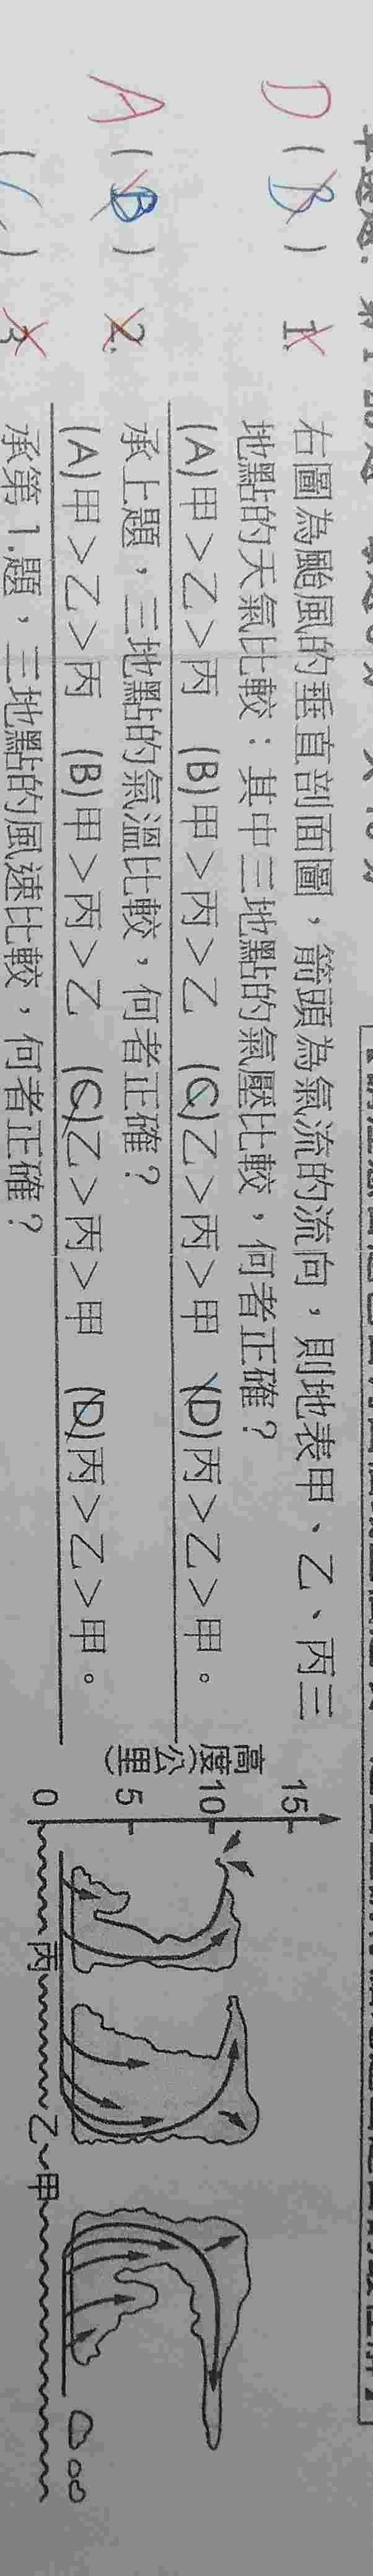 D ( B ) 1. 右圖為颱風的垂直剖面圖,箭頭為氣流的流向,則地表甲、乙、丙三
地點的天氣比較:其中三地點的氣壓比較,何者正確?
(A)甲>乙>丙 (B)甲>丙>乙 (C)乙>丙>甲 (D)丙>乙>甲。
A ( B ) 2. 承上題,三地點的氣溫比較,何者正確?
(A)甲>乙>丙 (B)甲>丙>乙 (C)乙>丙>甲 (D)丙>乙>甲。
3 承第 1.題,三地點的風速比較,何者正確?
高度(公里)
15
10
5
0
丙 乙 甲